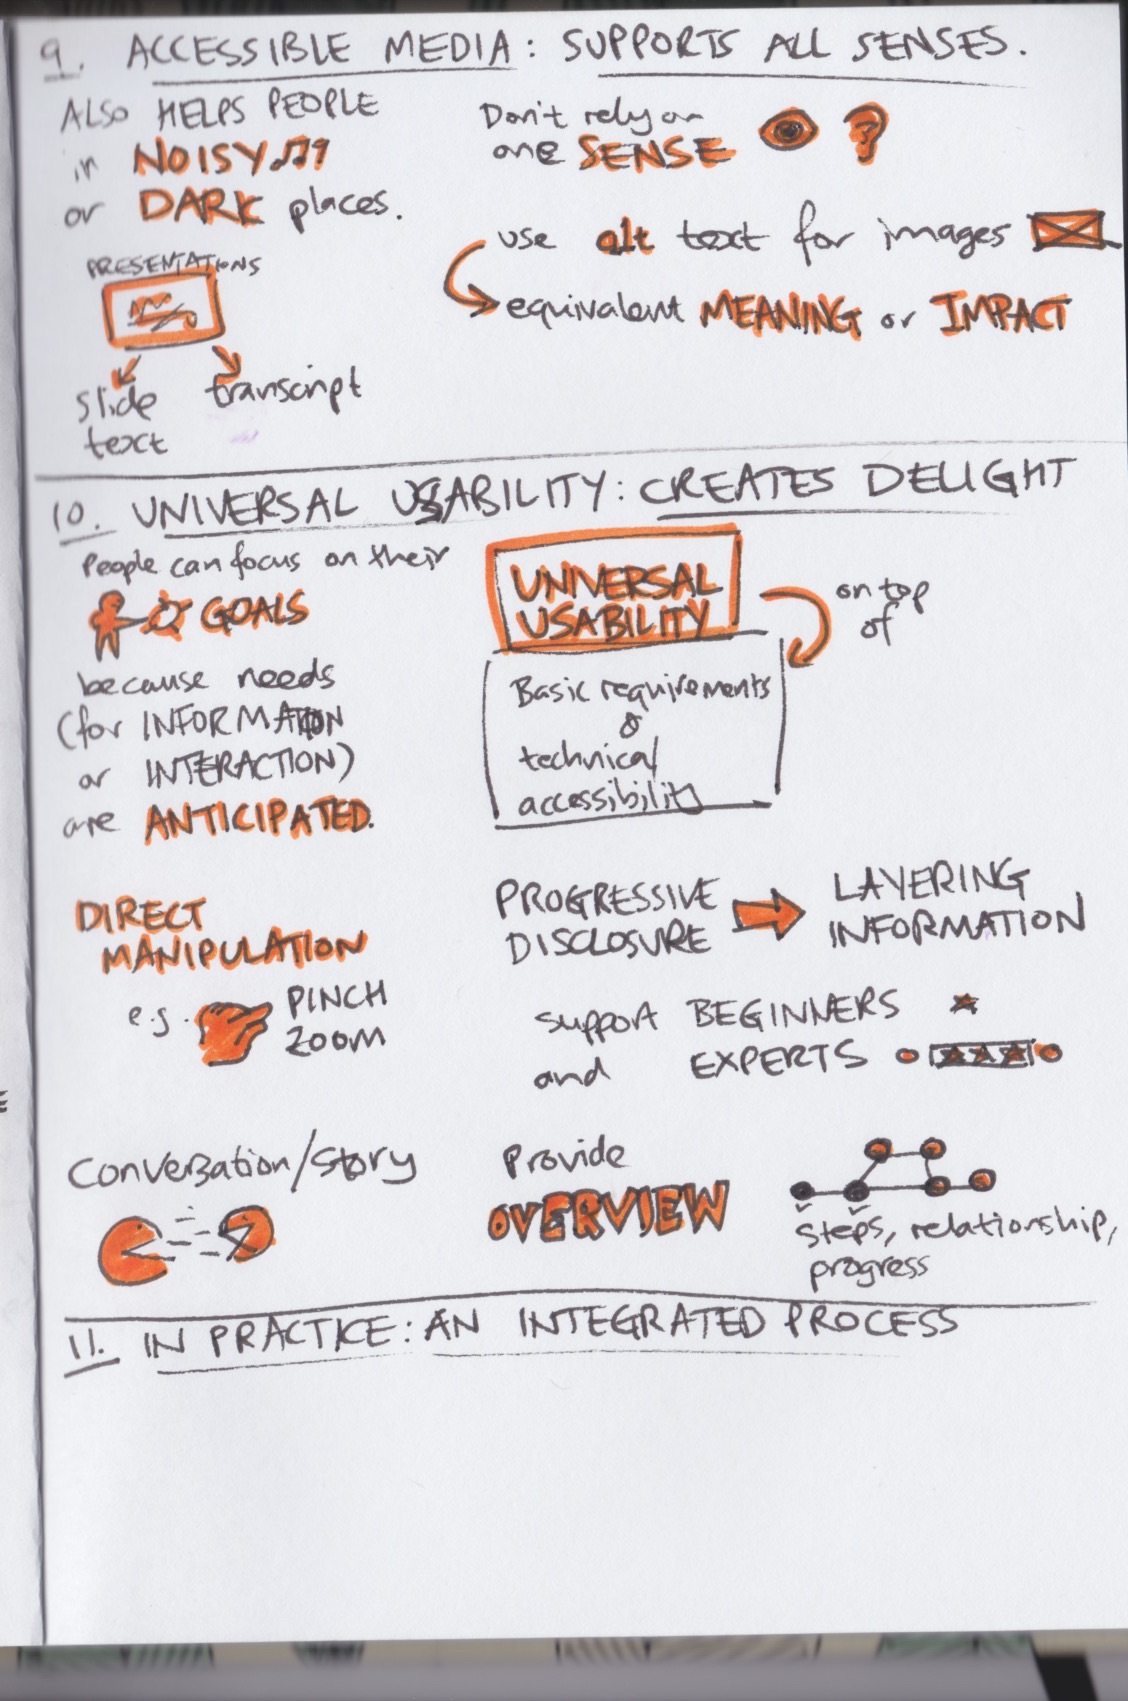 9. ACCESSIBLE MEDIA: SUPPORTS ALL SENSES.
ALSO HELPS PEOPLE
in NOISY
or DARK places.
PRESENTATIONS
slide
text
transcript
Don't rely on
one SENSE
use alt text for images
equivalent MEANING or IMPACT
10. UNIVERSAL USABILITY: CREATES DELIGHT
People can focus on their
GOALS
because needs
(for INFORMATION
or INTERACTION)
are ANTICIPATED.
UNIVERSAL
USABILITY
on top
of
Basic requirements
&
technical
accessibility
DIRECT
MANIPULATION
e.g. PINCH
ZOOM
PROGRESSIVE
DISCLOSURE
LAYERING
INFORMATION
support BEGINNERS
and EXPERTS
Conversation/Story
Provide
OVERVIEW
steps, relationship,
progress
11. IN PRACTICE: AN INTEGRATED PROCESS